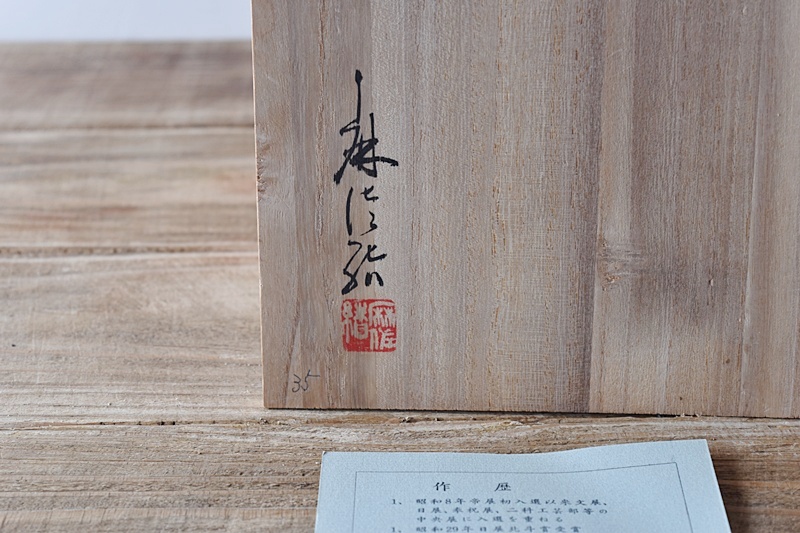 35
作 歴
1、昭和8年帝展初入選以来文展、
日展、奉祝展、二科工芸部等の
中央展に入選を重ねる
1、昭和29年日展北斗賞受賞